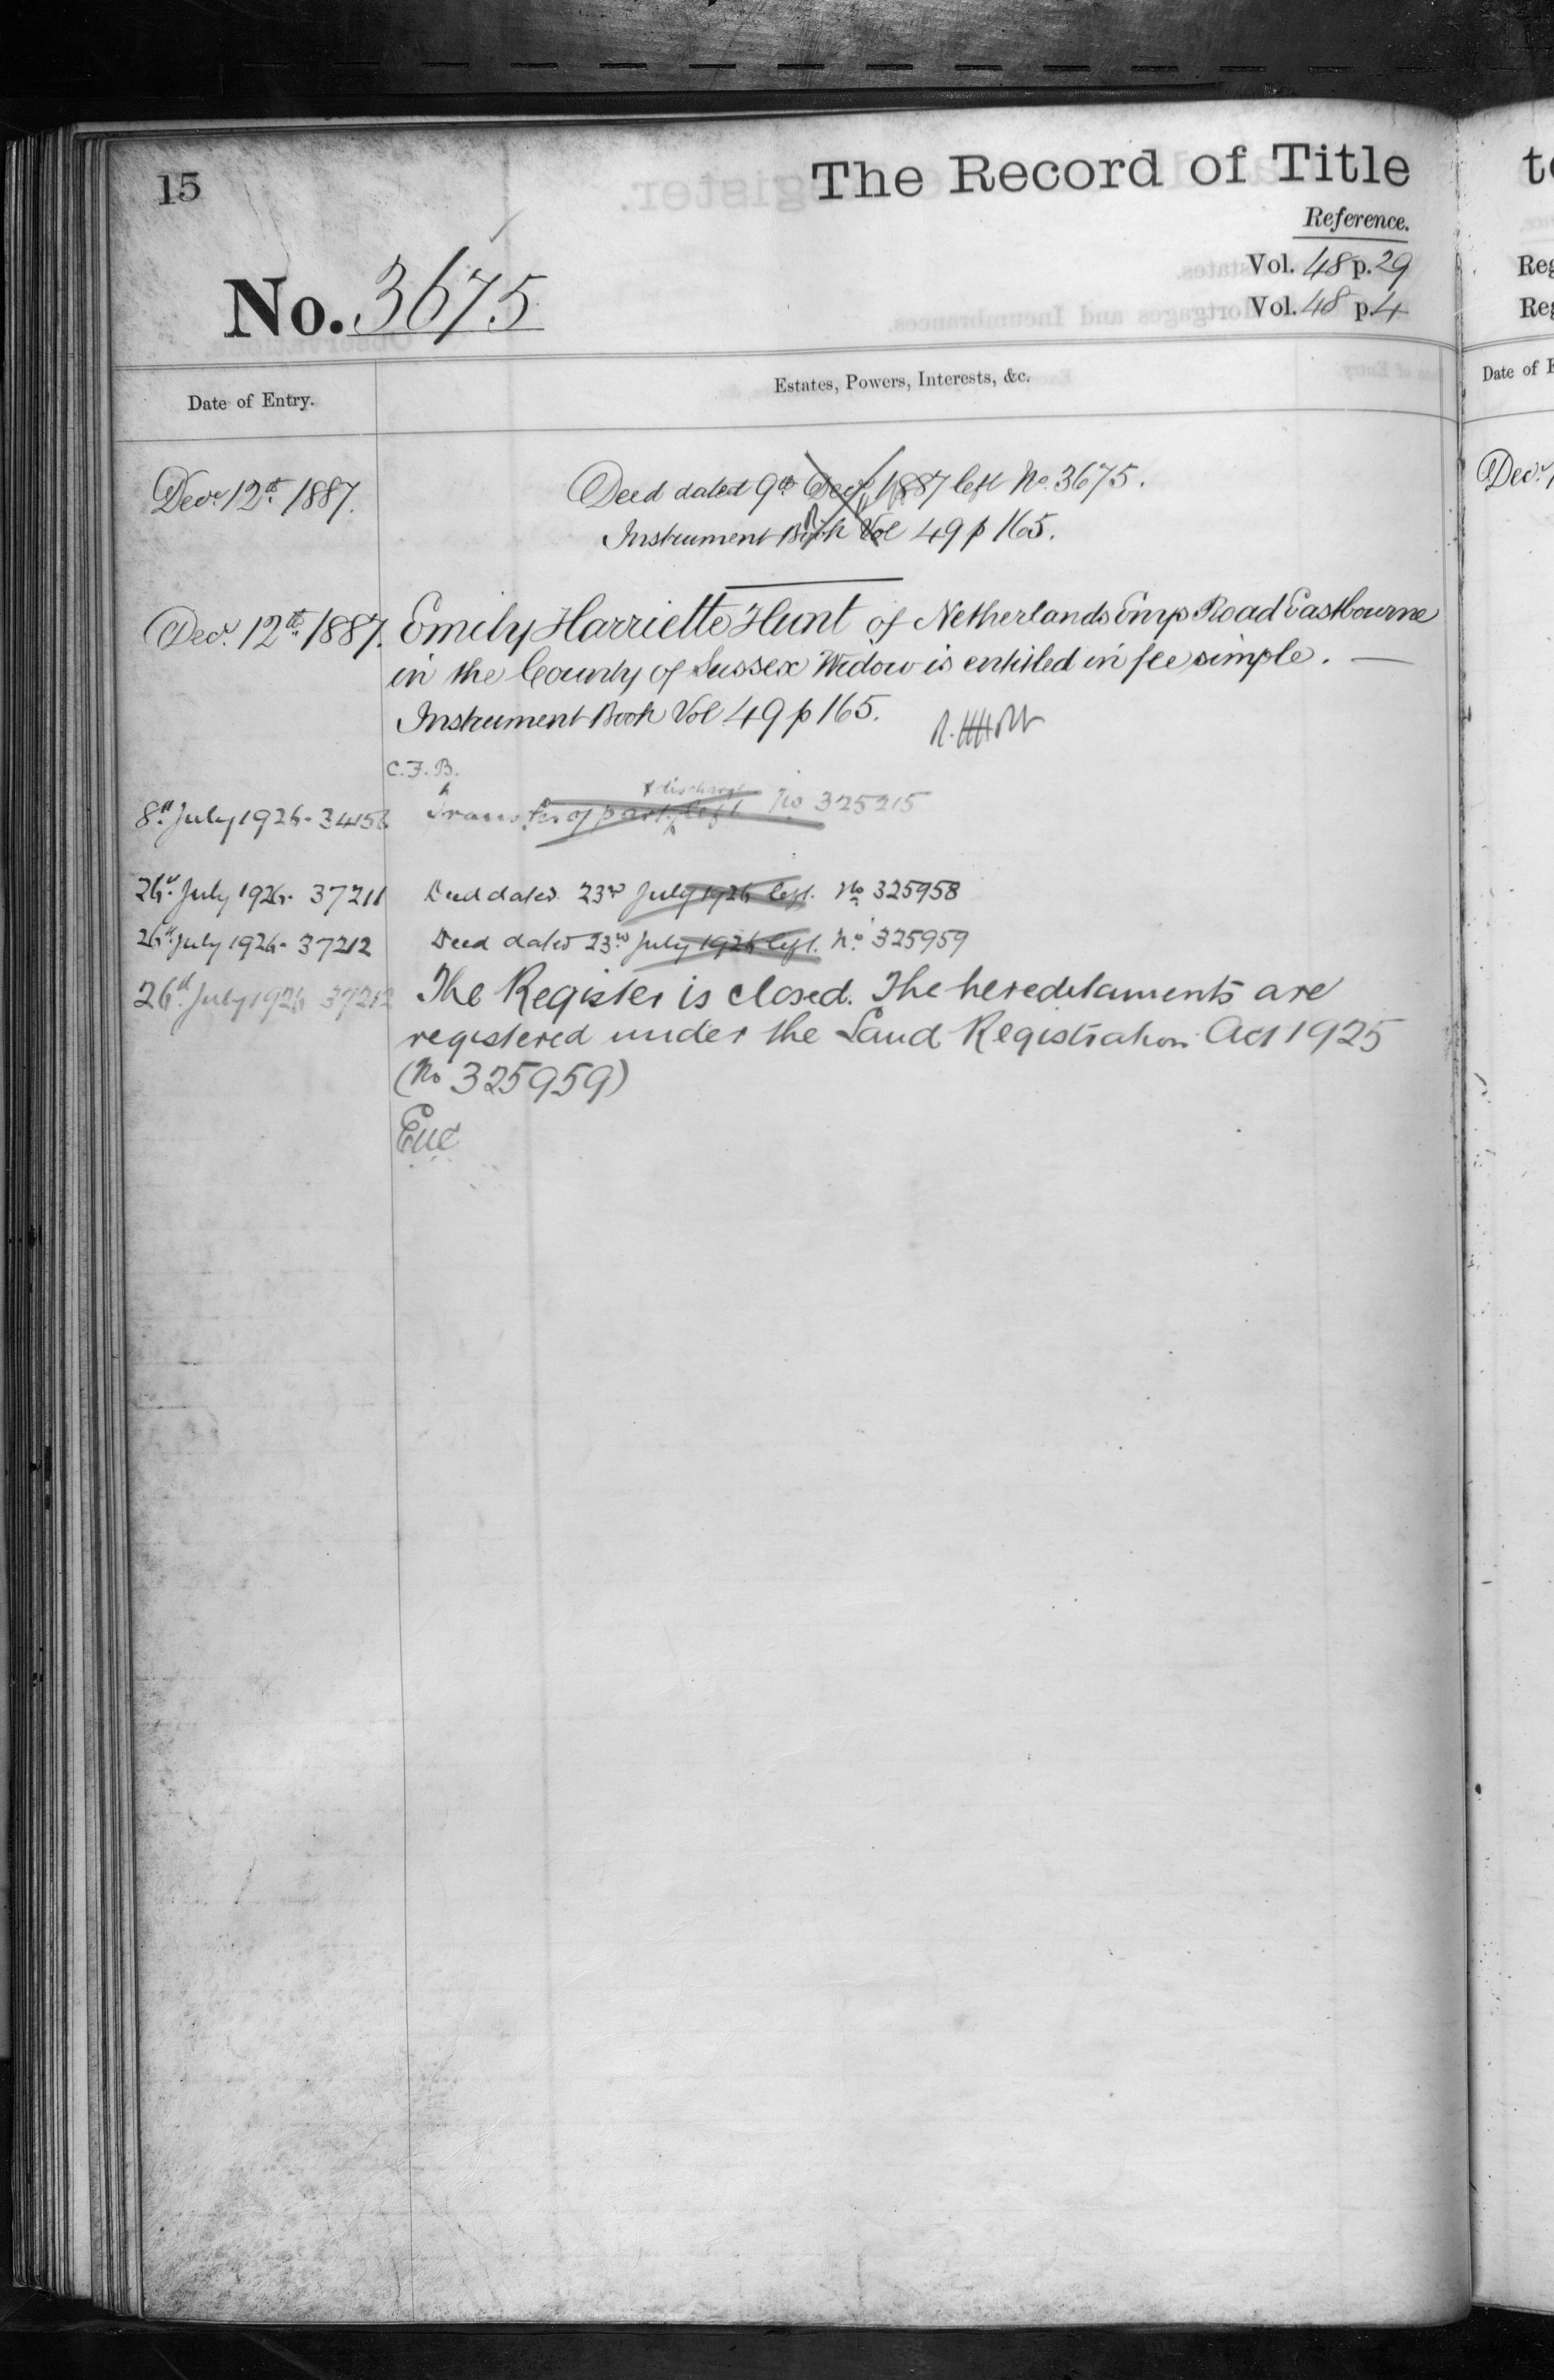 15
The Record of Title
Reference.
Vol. 48 p. 29
No. 3675
Vol. 48 p. 4
Date of Entry.
Estates, Powers, Interests, &c.
Decr. 12th 1887.
Deed dated 9th Decr. 1887 left No. 3675.
Instrument Book Vol 49 p 165.
Decr. 12th 1887.
Emily Harriette Hunt of Netherlands Road Eastbourne
in the County of Sussex Widow is entitled in fee simple.
Instrument Book Vol 49 p 165.
C.F.B.
8th July 1926
Transfer of part & discharge left No 325215
26th July 1926. 37211
Deed dated 23rd July 1926 left. No 325958
26th July 1926. 37212
Deed dated 23rd July 1926 left. No 325959
26th July 1926 37212
The Register is closed. The hereditaments are
registered under the Land Registration Act 1925
(No 325959)
to
Reg
Reg
Date of E
Decr. 1